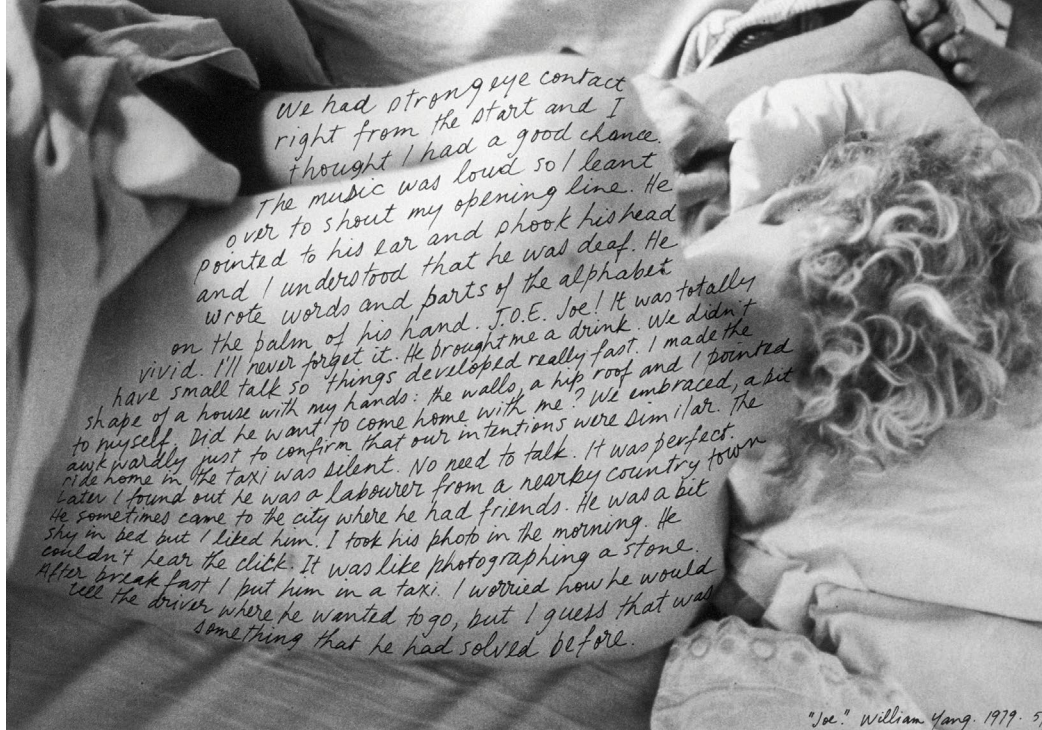 We had strong eye contact
right from the start and I
thought I had a good chance.
The music was loud so I leant
over to shout my opening line. He
pointed to his ear and shook his head
and I understood that he was deaf. He
wrote words and parts of the alphabet
on the palm of his hand. J.O.E. Joe! It was totally
vivid. I'll never forget it. He brought me a drink. We didn't
have small talk so things developed really fast. I made the
shape of a house with my hands: the walls, a hip roof and I pointed
to myself. Did he want to come home with me? We embraced, a bit
awkwardly just to confirm that our intentions were similar. The
ride home in the taxi was silent. No need to talk. It was perfect.
Later I found out he was a labourer from a nearby country town
He sometimes came to the city where he had friends. He was a bit
shy in bed but I liked him. I took his photo in the morning. He
couldn't hear the click. It was like photographing a stone.
After breakfast I put him in a taxi. I worried how he would
tell the driver where he wanted to go, but I guess that was
something that he had solved before.
"Joe." William Yang. 1979.